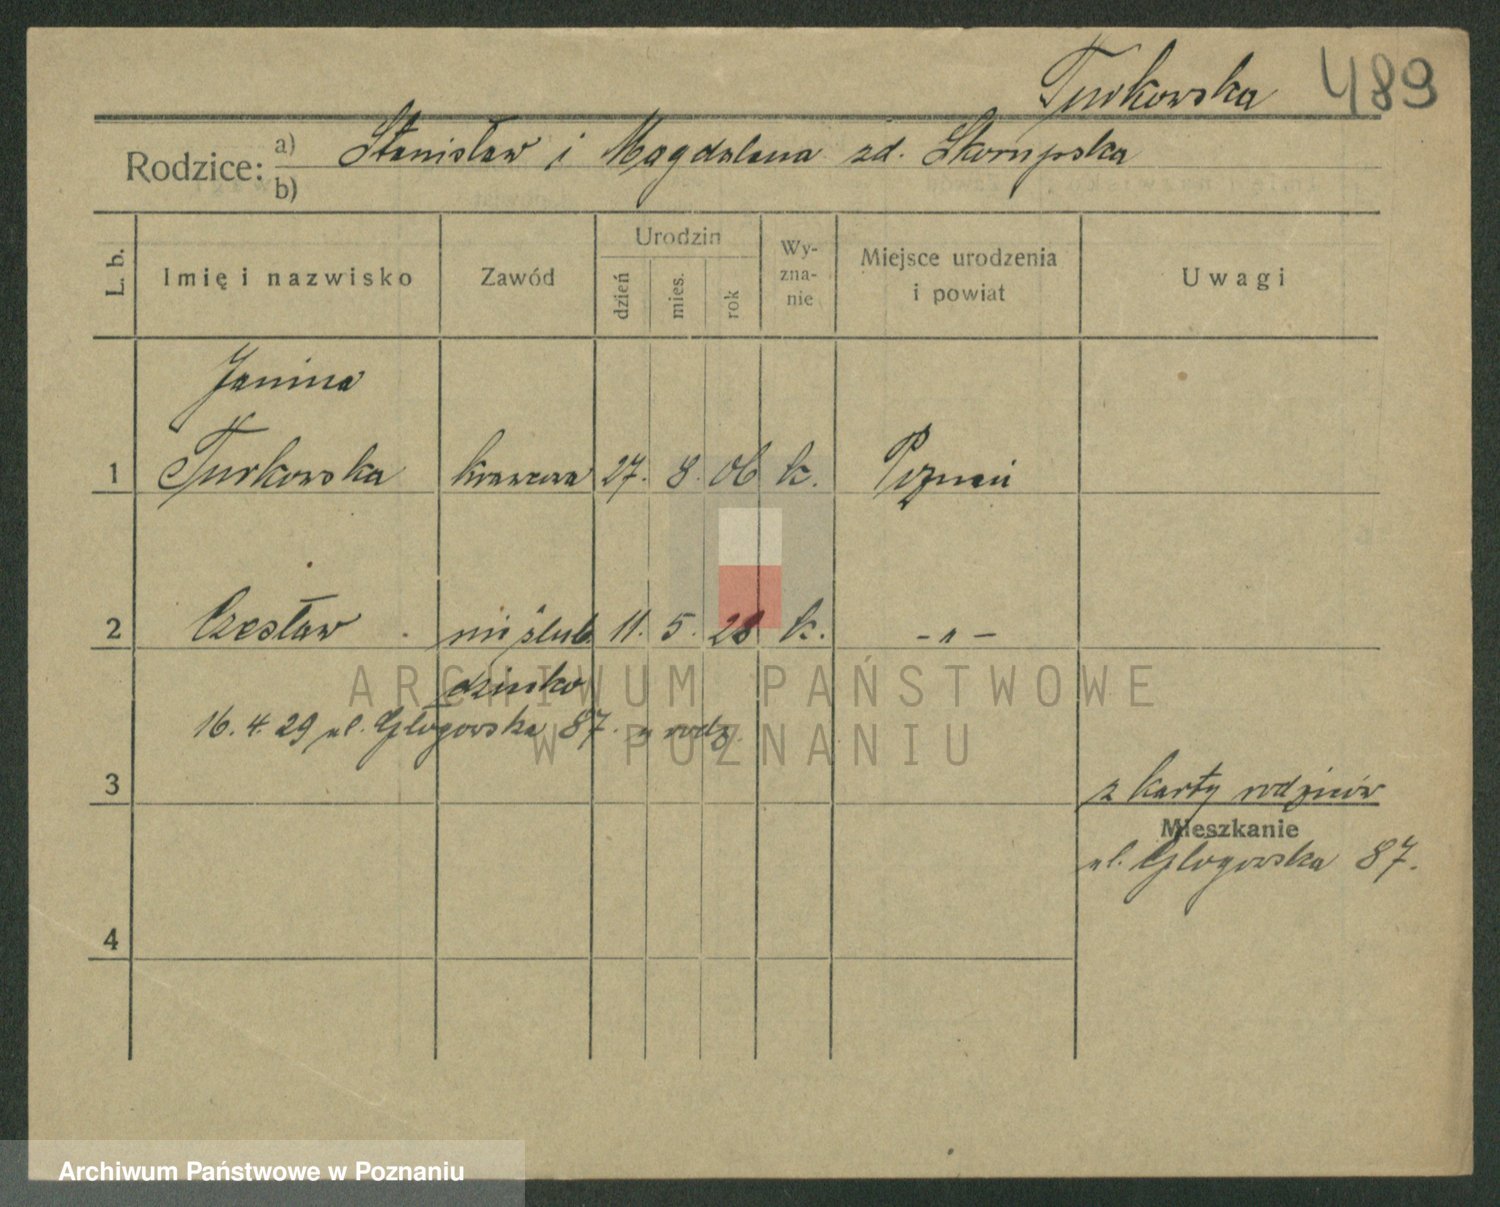 Turkowska 489
Rodzice: a) Stanisław i Magdalena zd. Skorupska
b)
L. b.
Imię i nazwisko
Zawód
Urodzin
dzień
mies.
rok
Wy-
zna-
nie
Miejsce urodzenia
i powiat
Uwagi
Janina
1 Turkowska krawcowa 27. 8. 06 k. Poznań
2 Czesław nieślub. 11. 5. 28 k. - " -
dziecko
16. 4. 29 ul. Głogowska 87. u rodz.
3
z karty rodziców
Mieszkanie
ul. Głogowska 87.
4
ARCHIWUM PAŃSTWOWE
W POZNANIU
Archiwum Państwowe w Poznaniu